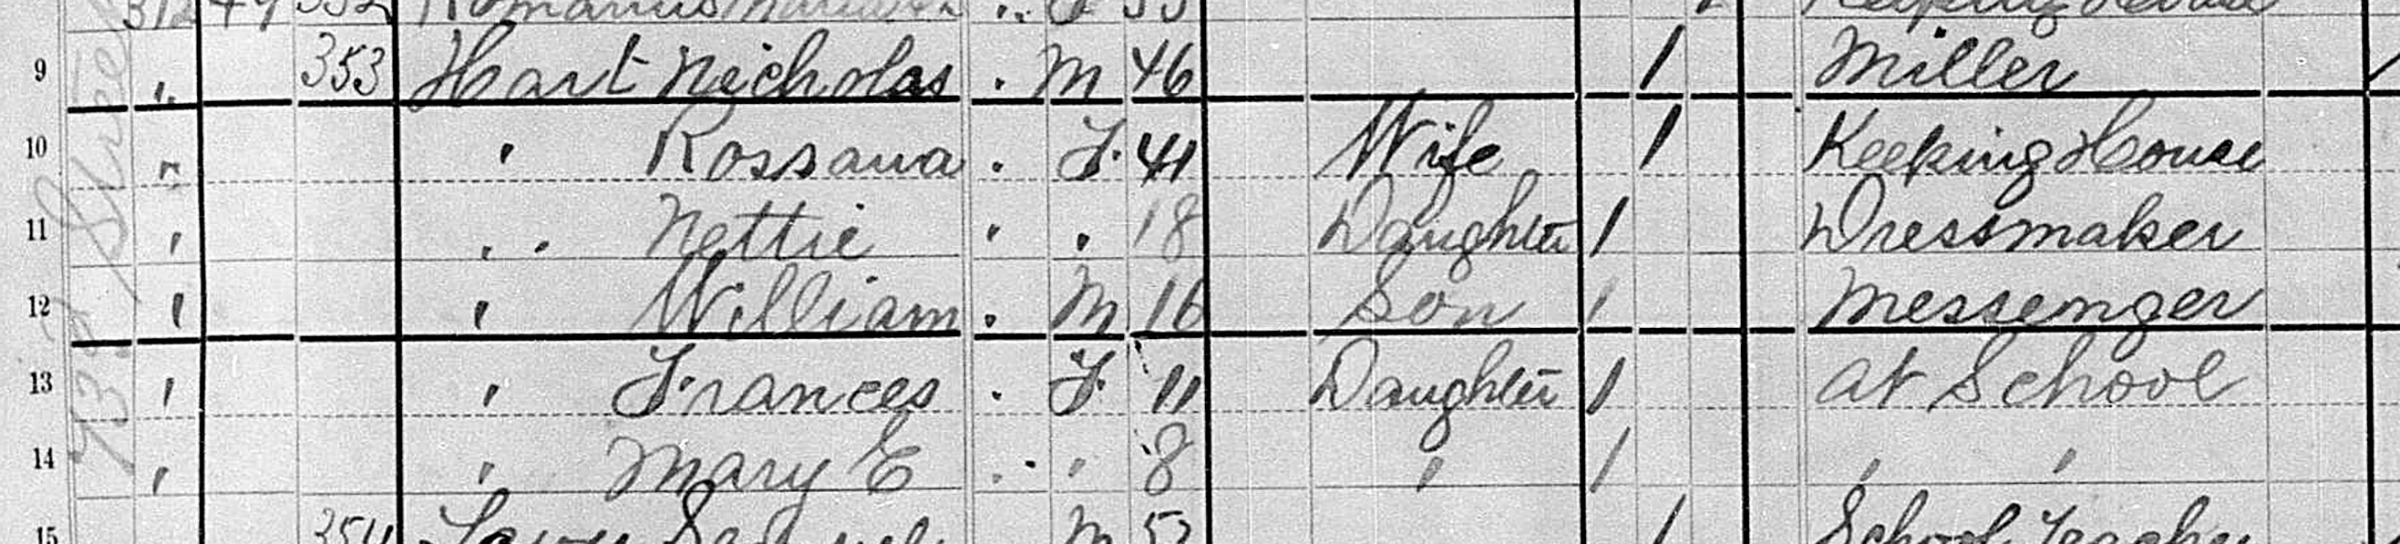 312 49 352 F 53 Keeping House
9 " 353 Hart Nicholas . M 46 1 Miller /
10 " " Rossana . F. 41 Wife 1 Keeping House
11 " " " Nettie " " 18 Daughter 1 Dressmaker
12 " " William . M 16 Son 1 Messenger
13 " " Frances . F. 11 Daughter 1 at School
14 " " Mary E . " 8 " 1 " "
15 354 M 1 School Teacher